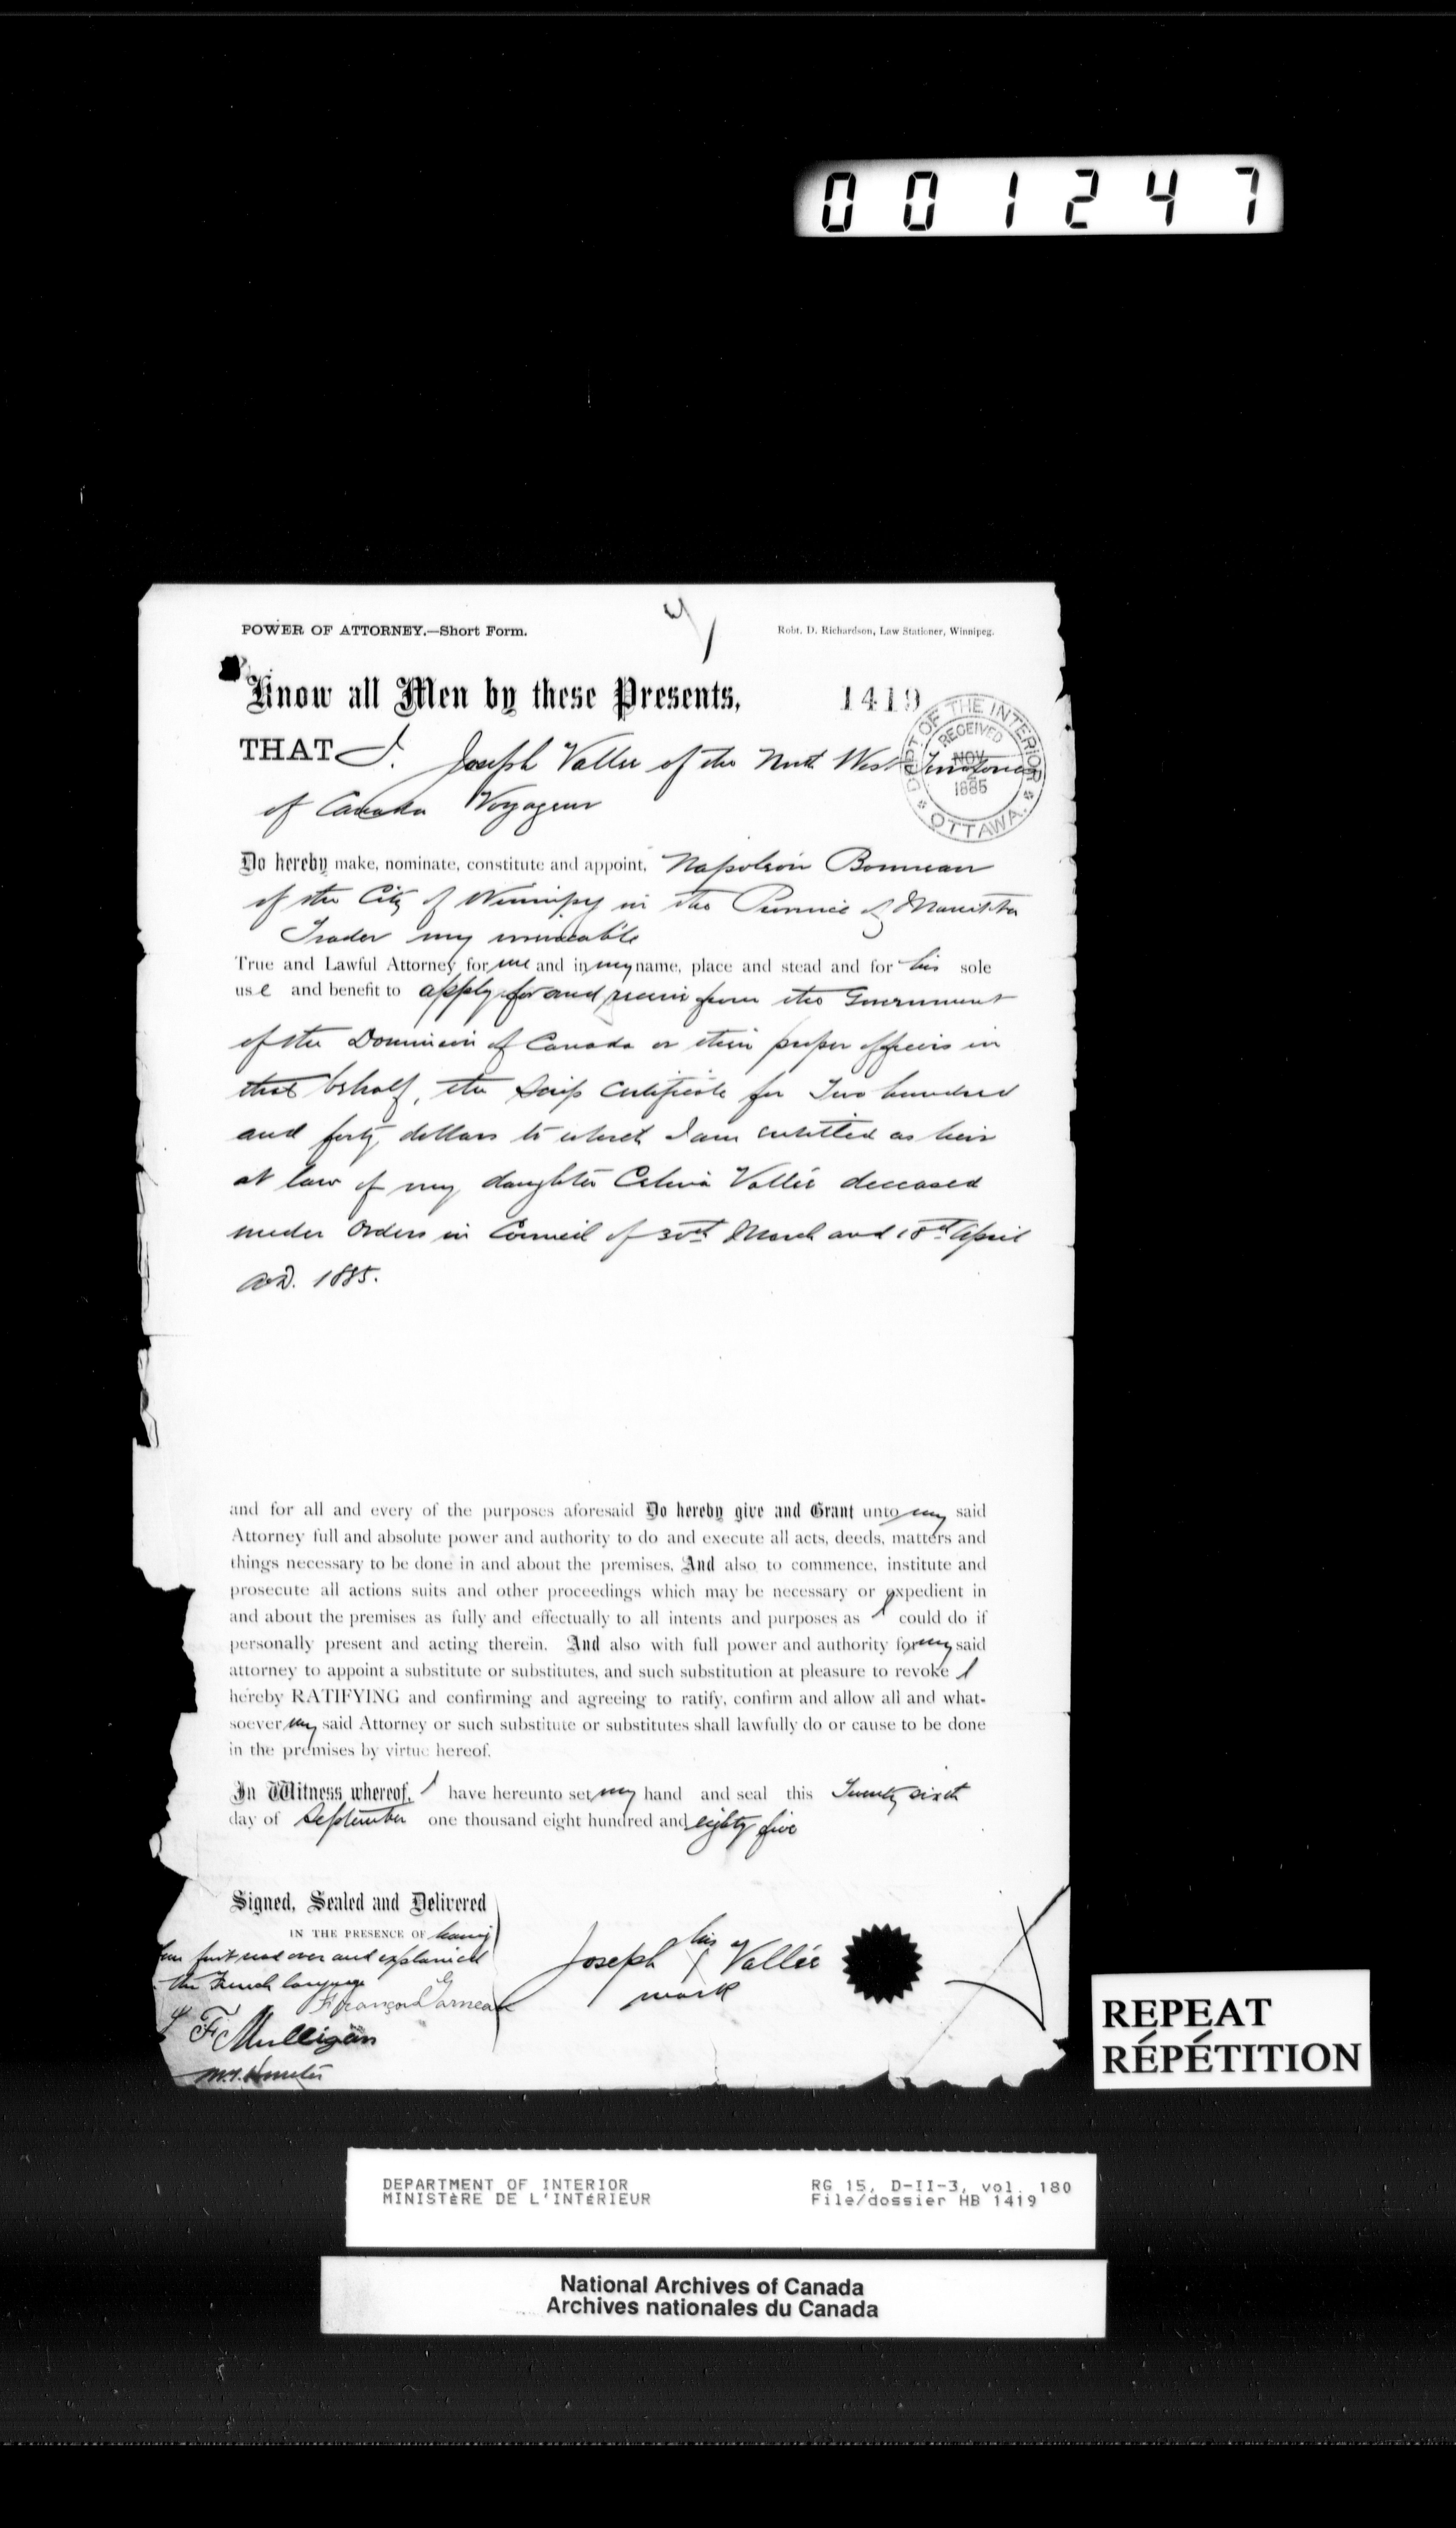 001247
POWER OF ATTORNEY.—Short Form.
Robt. D. Richardson, Law Stationer, Winnipeg.
Know all Men by these Presents,
1419
DEPT OF THE INTERIOR
RECEIVED
NOV
2
1885
OTTAWA.
THAT I. Joseph Vallee of the North West Territories
of Canada Voyageur
Do hereby make, nominate, constitute and appoint, Napoleon Bonneau
of the City of Winnipeg in the Province of Manitoba
Trader my irrevocable
True and Lawful Attorney for me and in my name, place and stead and for his sole
use and benefit to apply for and receive from the Government
of the Dominion of Canada or their proper officers in
that behalf, the Scrip Certificate for Two hundred
and forty dollars to which I am entitled as heir
at law of my daughter Celina Vallée deceased
under Orders in Council of 30th March and 18th April
A.D. 1885.
and for all and every of the purposes aforesaid Do hereby give and Grant unto my said
Attorney full and absolute power and authority to do and execute all acts, deeds, matters and
things necessary to be done in and about the premises, And also to commence, institute and
prosecute all actions suits and other proceedings which may be necessary or expedient in
and about the premises as fully and effectually to all intents and purposes as I could do if
personally present and acting therein. And also with full power and authority for my said
attorney to appoint a substitute or substitutes, and such substitution at pleasure to revoke I
hereby RATIFYING and confirming and agreeing to ratify, confirm and allow all and what-
soever my said Attorney or such substitute or substitutes shall lawfully do or cause to be done
in the premises by virtue hereof.
In Witness whereof, I have hereunto set my hand and seal this Twenty sixth
day of September one thousand eight hundred and eighty five
Signed, Sealed and Delivered
IN THE PRESENCE OF having
been first read over and explained
the French language
François Garneau
F Mulligan
Joseph his X Vallée
mark
REPEAT
RÉPÉTITION
DEPARTMENT OF INTERIOR
MINISTÈRE DE L'INTÉRIEUR
RG 15, D-II-3, vol. 180
File/dossier HB 1419
National Archives of Canada
Archives nationales du Canada